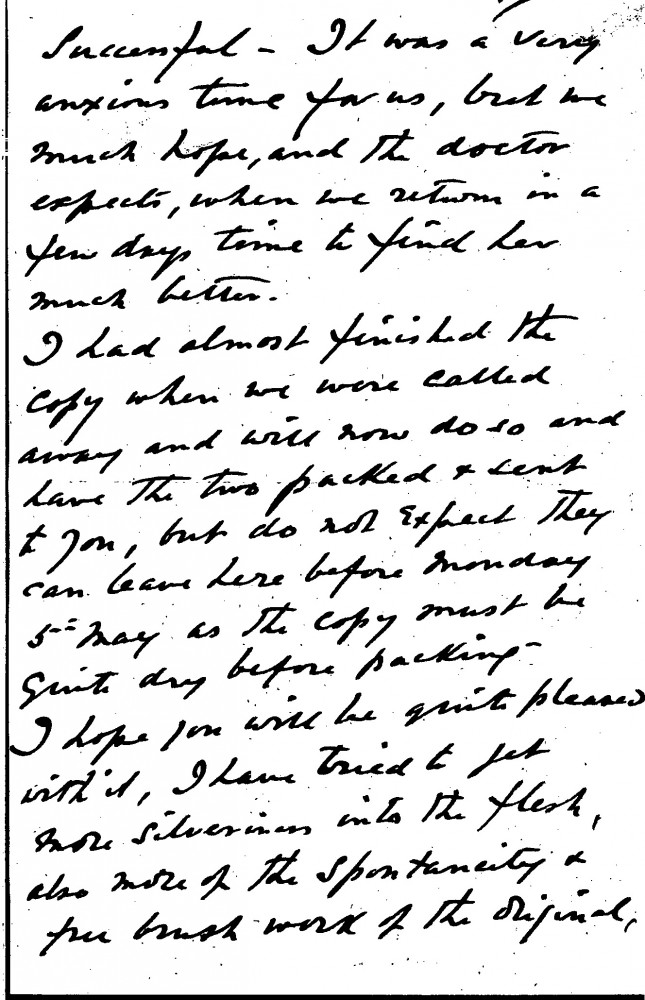 Successful – It was a very
anxious time for us, but we
much hope, and the doctor
expects, when we return in a
few days time to find her
much better.
I had almost finished the
copy when we were called
away and will now do so and
have the two packed & sent
to you, but do not expect they
can leave here before Monday
5= May as the copy must be
quite dry before packing –
I hope you will be quite pleased
with it, I have tried to get
more silveriness into the flesh,
also more of the spontaneity &
free brush work of the original,